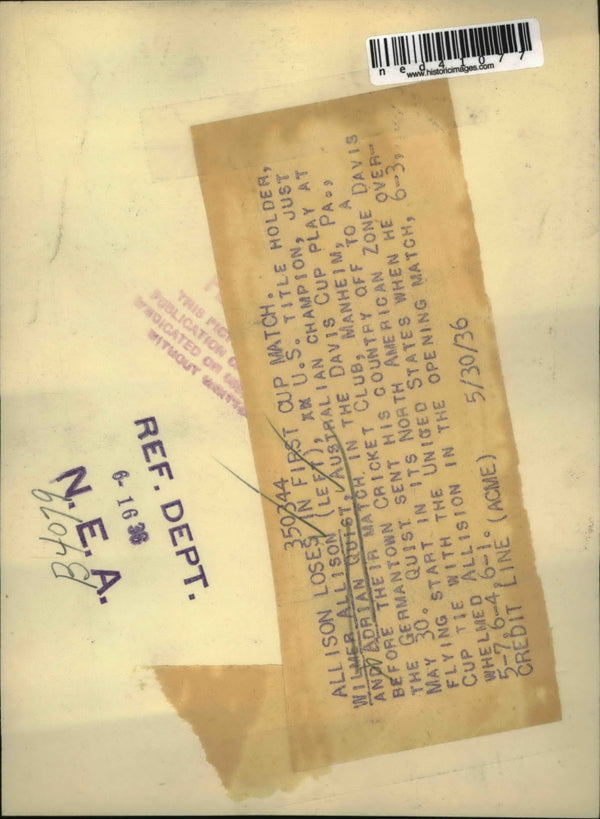 ned41077
www.historicimages.com
350344
ALLISON LOSES IN FIRST CUP MATCH.
WILMER ALLISON (LEFT), XX U.S. TITLE HOLDER,
AND ADRIAN QUIST, AUSTRALIAN CHAMPION, JUST
BEFORE THEIR MATCH IN THE DAVIS CUP PLAY AT
THE GERMANTOWN CRICKET CLUB, MANHEIM, PA.,
MAY 30. QUIST SENT HIS COUNTRY OFF TO A
FLYING START IN ITS NORTH AMERICAN ZONE DAVIS
CUP TIE WITH THE UNICED STATES WHEN HE OVER-
WHELMED ALLISION IN THE OPENING MATCH, 6-3,
5-7, 6-4, 6-1.
CREDIT LINE (ACME) 5/30/36
THIS
PUBLICATION
SYNDICATED OR
WITHOUT
REF. DEPT.
6-16 36
N.E.A.
B4079